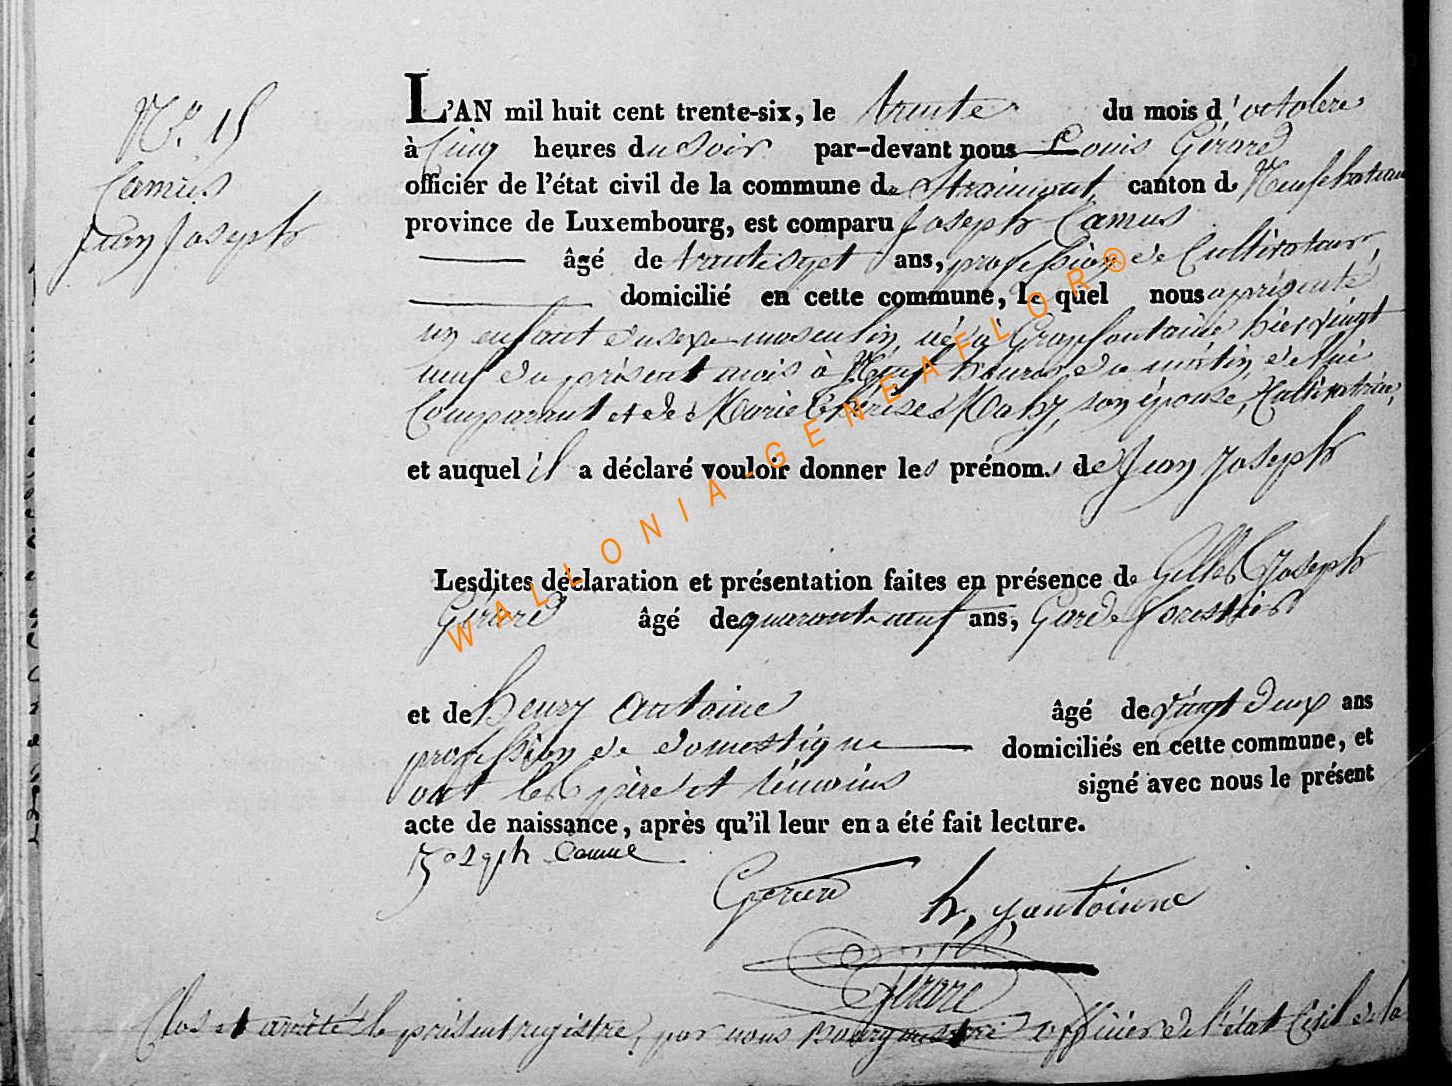 N.o 15
Camus
Jean Joseph
L'AN mil huit cent trente-six, le trente du mois d'octobre
à Cinq heures du Soir par-devant nous Louis Gérard
officier de l'état civil de la commune de Straimont, canton de Neufchateau
province de Luxembourg, est comparu Joseph Camus
âgé de trente sept ans, profession de Cultivateur,
domicilié en cette commune, le quel nous a présenté
un enfant du sexe masculin, né à Grapfontaine hier vingt
neuf du présent mois à Neuf heures du matin de lui
Comparant et de Marie Thérèse Mahy, son épouse, Cultivatrice,
et auquel il a déclaré vouloir donner les prénoms de Jean Joseph
Lesdites déclaration et présentation faites en présence de Gilles Joseph
Gérard âgé de quarante neuf ans, Garde forestier
et de henry antoine âgé de vingt deux ans
profession de domestique domiciliés en cette commune, et
ont les père et témoins signé avec nous le présent
acte de naissance, après qu'il leur en a été fait lecture.
Joseph Camus
Gerard
h, J, antoine
Gérard
Clos et arrêté le présent registre, par nous Bourgmestre officier de l'état Civil de la
WALLONIA-GENEAFLOR®